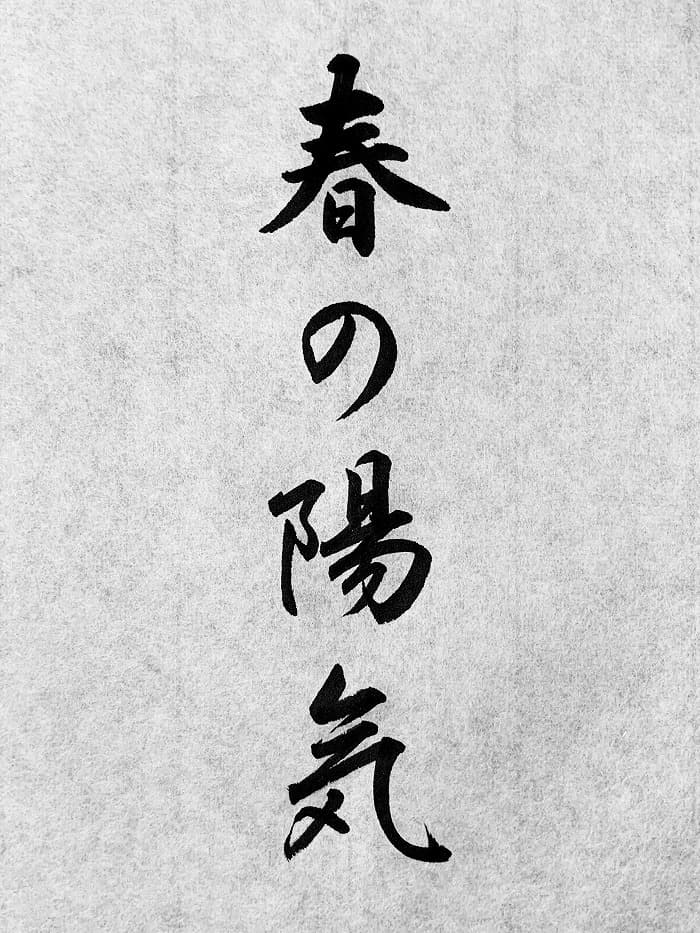 春の陽気